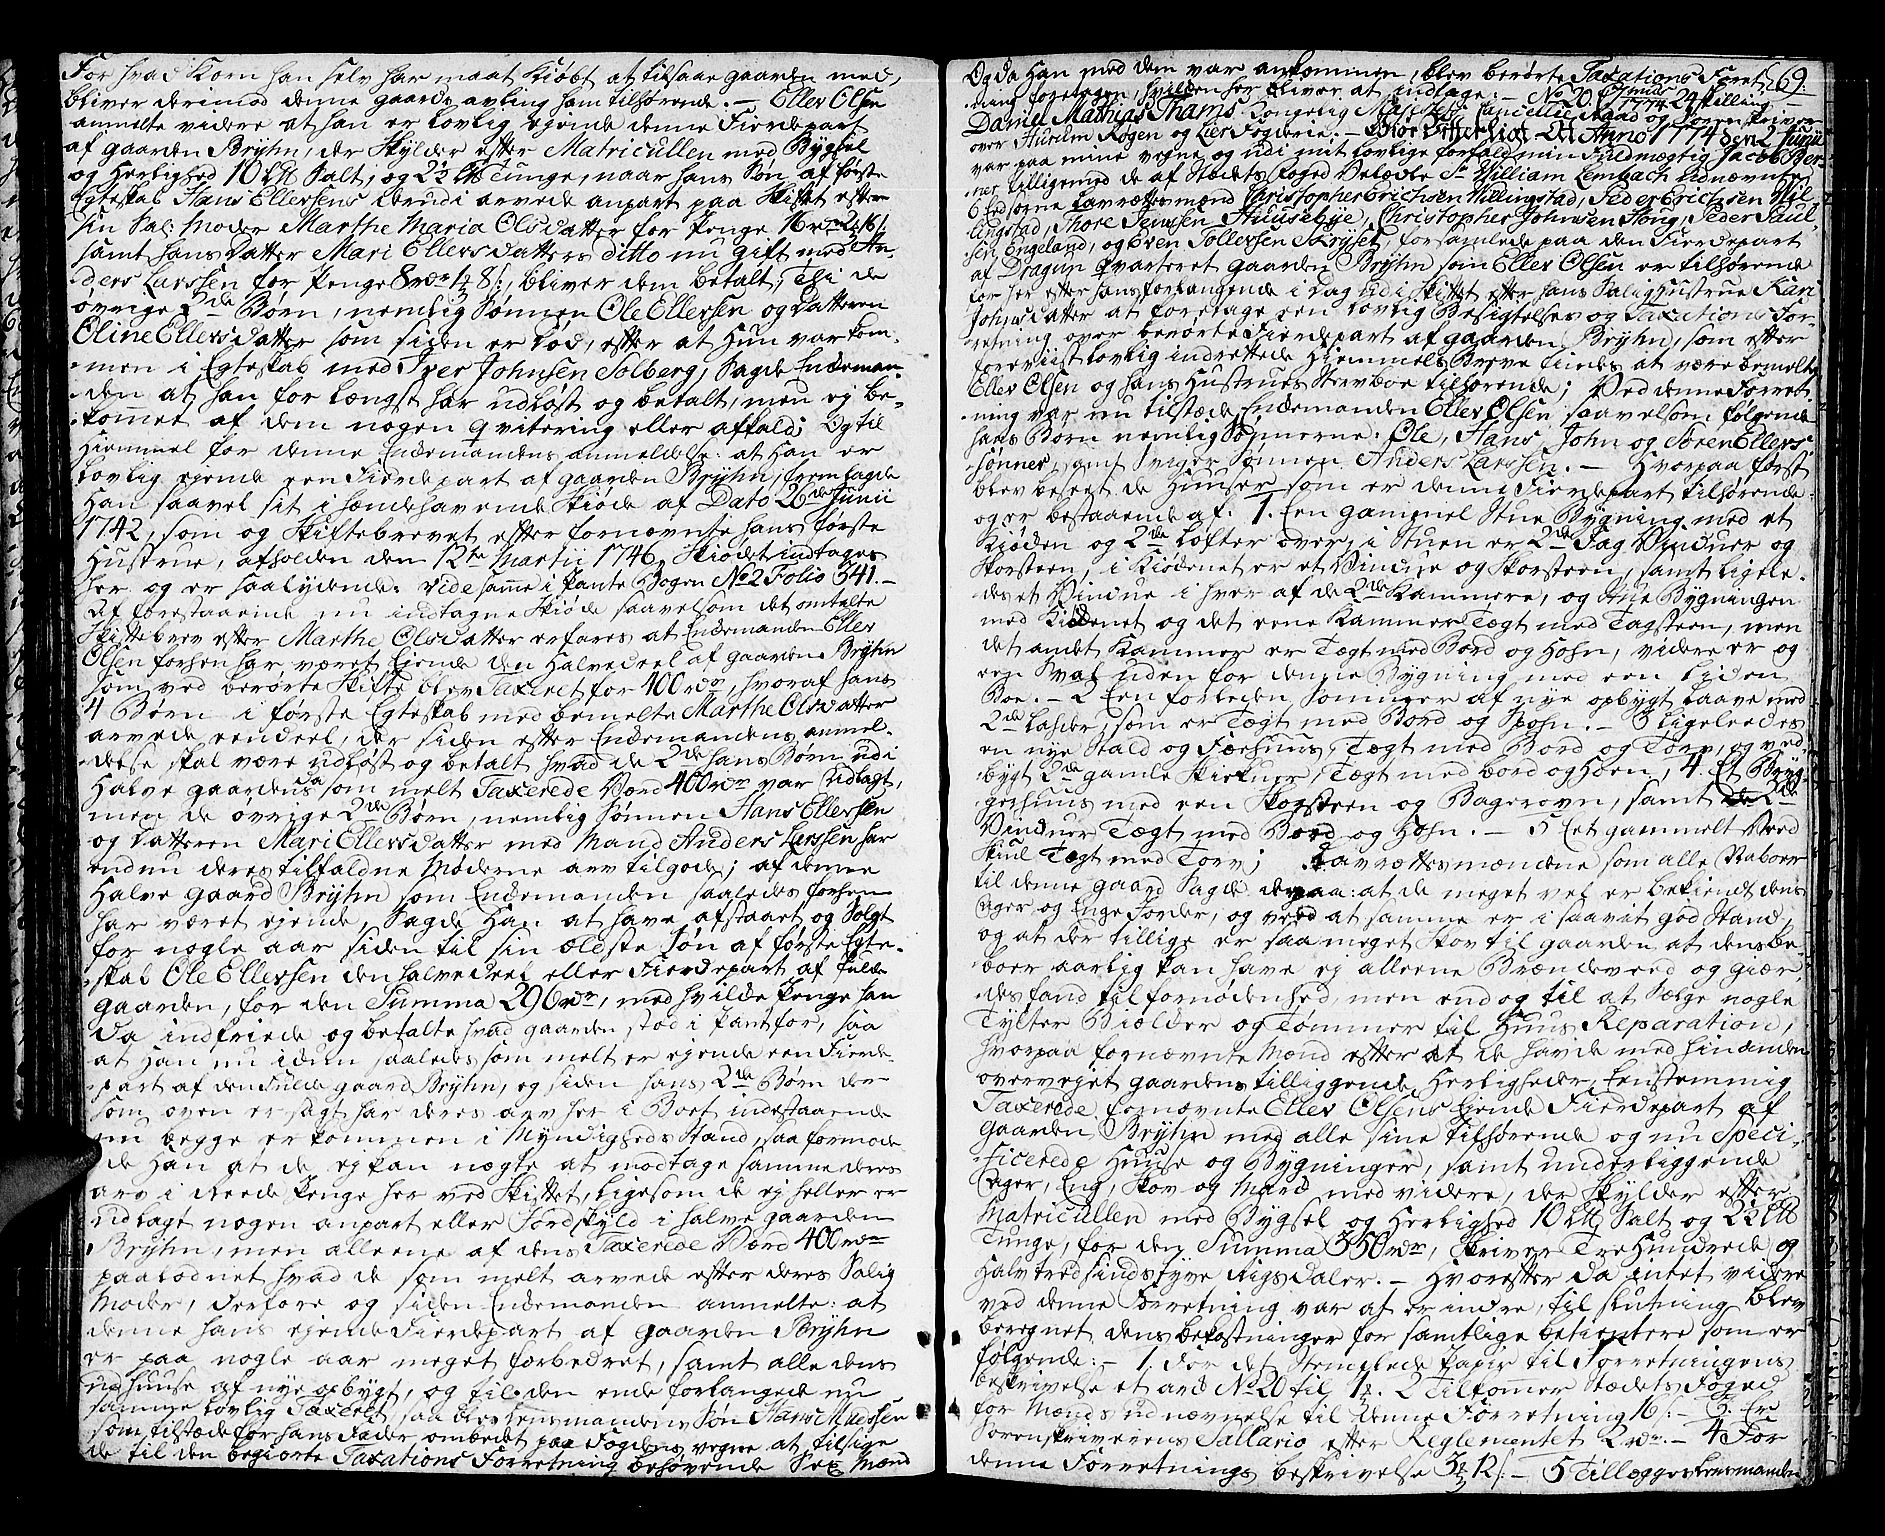 For hvad Korn han selv har maat kiøbt at tilsaae gaarden med,
bliver derimod denne gaards avling ham tilhørende. — Eller Olsen
anmelte videre at han er lovlig eyende denne Fierdepart
af gaarden Brÿhn, der Skylder efter Matricullen med Bygsel
og Herlighed 10 L℔ Salt, og 2½ L℔ Tunge, naar hans Søn af første
Egteskab Hans Ellersens derudi arvede anpart paa Skiftet efter
sin Sal: Moder Marthe Maria Olsdatter for Penge 16 rdr 2 16 s.
samt hans Datter Mari Ellersdatters ditto nu gift med An-
ders Larssen for Penge 8 rdr 1 8 s:, bliver dem betalt, Thi de
øvrige 2de Børn, nemlig Sønnen Ole Ellersen og Datteren
Eline Ellersdatter som siden er død, efter at Hun var kom-
men i Egteskab med Iver Johnsen Solberg, Sagde Enkeman-
den at han for længst har udløst og betalt, men ej be-
kommet af dem nogen qvitering eller afkald; Og til
Hiemmel for denne Enkemandens anmeldelse: at Han er
lovlig eyende een Fierdepart af gaarden Brÿhn, fremlagde
Han saavel sit i hændehavende Skiøde af Dato 26de Junii
1742, som og Skiftebrevet efter fornævnte hans første
Hustrue, afholden den 12te Martii 1746, Skiødet indtages
her og er saalydende. vide samme i Pante Bogen No 2 Folio 341. —
Af forestaaende nu indtagne Skiøde saavelsom det omtalte
Skiftebrev efter Marthe Olsdatter erfares at Enkemanden Eller
Olsen forhen har været Eyende den Halvedeel af gaarden Brÿhn
som ved berørte Skifte blev Taxeret for 400 rdr, hvoraf hans
4 Børn i første Egteskab med bemelte Marthe Olsdatter
arvede eendeel, der siden efter Enkemandens anmel-
delse skal være udløst og betalt hvad de 2de hans Børn udi
Halve gaardens da som melt Taxerede Værd 400 rdr var udlagt,
men de øvrige 2de Børn, nemlig Sønnen Hans Ellersen
og Datteren Mari Ellersdatter med Mand Anders Larssen har
endnu deres tilfaldne Møderne arv tilgode; af denne
Halve gaard Brÿhn som Enkemanden saaledes forhen
har været ejende, Sagde Han at have afstaaet og Solgt
for nogle aar siden til sin ældste Søn af første Egte-
skab Ole Ellersen den halvedeel eller Fierdepart af fulde
gaarden, for den Summa 296 rdr, med hvilke Penge han
da indfriede og betalte hvad gaarden stod i Pant for, saa
at Han nu ikun saaledes som melt er ejende een Fierde-
part af den Fulde gaard Brÿhn, og siden hans 2de Børn der
som oven er sagt har deres arv her i Boet indestaaende
nu begge er kommen i Myndigheds Stand, saa formode-
de Han at de ej kan nægte at modtage samme deres
arv i reede Penge her ved Skiftet, ligesom de ej heller er
udlagt nogen anpart eller Jordskyld i halve gaarden
Brÿhn, men alleene af dens Taxerede Værd 400 rdr
paalodnet hvad de som melt arvede efter deres Salig
Moder, derfore og siden Enkemanden anmelte: at
denne hans ejende Fierdepart af gaarden Brÿhn
er paa nogle aar meget forbedret, samt alle dens
udhuuse af nye opbygt, og til den ende forlangede nu
samme lovlig Taxeret, saa blev Lensmandens Søn Hans
som tilstæde for hans Fader ombedt paa Fogdens vegne at tilsige
de til den begiærte Taxations Forretning behøvende Sex Mænd
Og da Han med dem var ankommen, blev berørte Taxations Foret- 69.
ning foretagen, hvilken her bliver at indlægge: — No 20. 1774 24 Skilling —
Daniel Mathias Thams Kongelig Majestets Cancellie Raad og Sorenskriver
over Hurum Røgen og Lier Fogderie. — Giør Vitterligt at Anno 1774 den 2 Junii
var paa mine vegne og udi mit lovlige forfald min Fuldmægtig Jacob Ber-
ner tilligemed de af Stædets Foged Velædle Sr William Lembach udnævnte
6 Edsorne Lavrettesmænd Christopher Erichsen Willingstad, Peder Erichsen Wil-
lingstad, Thore Jensen Huusebye, Christopher Johnsen Hong, Peder Paul-
sen Engeland, og Even Tollefsen Skrÿset, forsamlede paa den Fierdepart
af Dragun qvarteret gaarden Brÿhn som Eller Olsen er tilhørende
for her efter hans forlangende i dag udi Skiftet efter hans Salig Hustrue Kari
Johnsdatter at foretage een lovlig Besigtelses og Taxations For-
retning over berørte Fierdepart af gaarden Brÿhn, som efter
foreviist lovlig indrettede Hiemmels Breve findes at være bemelte
Eller Olsen og hans Hustrues Stervboe tilhørende; Ved denne Forret-
ning var nu tilstæde Enkemanden Eller Olsen saavelsom følgende
hans Børn nemlig Sønnerne: Ole, Hans, John og Søren Ellers
sønner, samt Sviger Sønnen Anders Larssen. — Hvorpaa først
blev beseet de Huuser som er denne Fierdepart tilhørende
og er bestaaende af. 1. Een gammel Stue Bygning med et
Kiøken og 2de Lofter over, i Stuen er 2de Fag Vinduer og
Skorsteen, i Kiøkenet er et Vindue og Skorsteen, samt ligele-
des et Vindue i hver af de 2de Kammere, og Stue Bygningen
med Kiøkenet og det eene Kammer Tægt med Tagsteen, men
det andet Kammer er Tægt med Bord og Hohn, videre er og
een Sval uden for denne Bygning med een liden
Boe. — 2 Een forleden Sommer af nye opbygt Laave med
2de Laftder, som er Tægt med Bord og Spohn. — 3 Ligeleedes
en nye Stald og Fæehuus, Tægt med Bord og Tørv, og ved-
bygt 2de gamle Skikuer, Tægt med bord og Hoen, 4. Et Bryg-
gerhuus med een Skogsteen og Bagerovn, samt 2de
Vinduer Tægt med Bord og Hohn. — 5 Eet gammelt Vord
Skiul Tægt med Torv; Lavrettesmændene som alle Naboer
til denne gaard Sagde derpaa: at de meget vel er bekiendt dens
Ager og Enge Jorder, og veed at samme er i saavit god Stand,
og at der tillige er saa meget Skov til gaarden at dens be-
boer aarlig kan have ej alleene Brændeveed og Giær-
desfand til fornødenhed, men end og til at Sælge nogle
Tylter Bielker og Tømmer til Huus Reparation,
hvorpaa fornævnte Mænd efter at de havde med hinanden
overvejet gaardens tilliggende Herligheder, Eenstemmig
Taxerede fornævnte Eller Olsens Ejende Fierdepart af
Gaarden Brÿhn med alle sine tilhørende og nu Speci-
ficerede Huuse og Bygninger, samt underliggende
Ager, Eng, Skov og Mark med videre, der Skylder efter
Matricullen med Bygsel og Herlighed 10 L℔ Salt og 2½ L℔
Tunge, for den Summa 350 rdr, Skriver Tre Hundrede og
Halvtredsindstyve Rigsdaler. — Hvorefter da intet videre
ved denne Forretning var at erindre, til slutning blev
beregnet dens bekostninger for samtlige betientere som er
følgende: — 1. For det Stemplede Papir til Forretningens
beskrivelse et ark No 20 til 1. 2 Tilkommer Stædets Foged
for Mænds udnævnelse til denne Forretning 16 s: — 3. Er
Sorenskriverens Sallario efter Reglementet 2 rdr. — 4 For
denne Forretnings beskrivelse 3 12 s: — 5 Tillægges Lensmanden